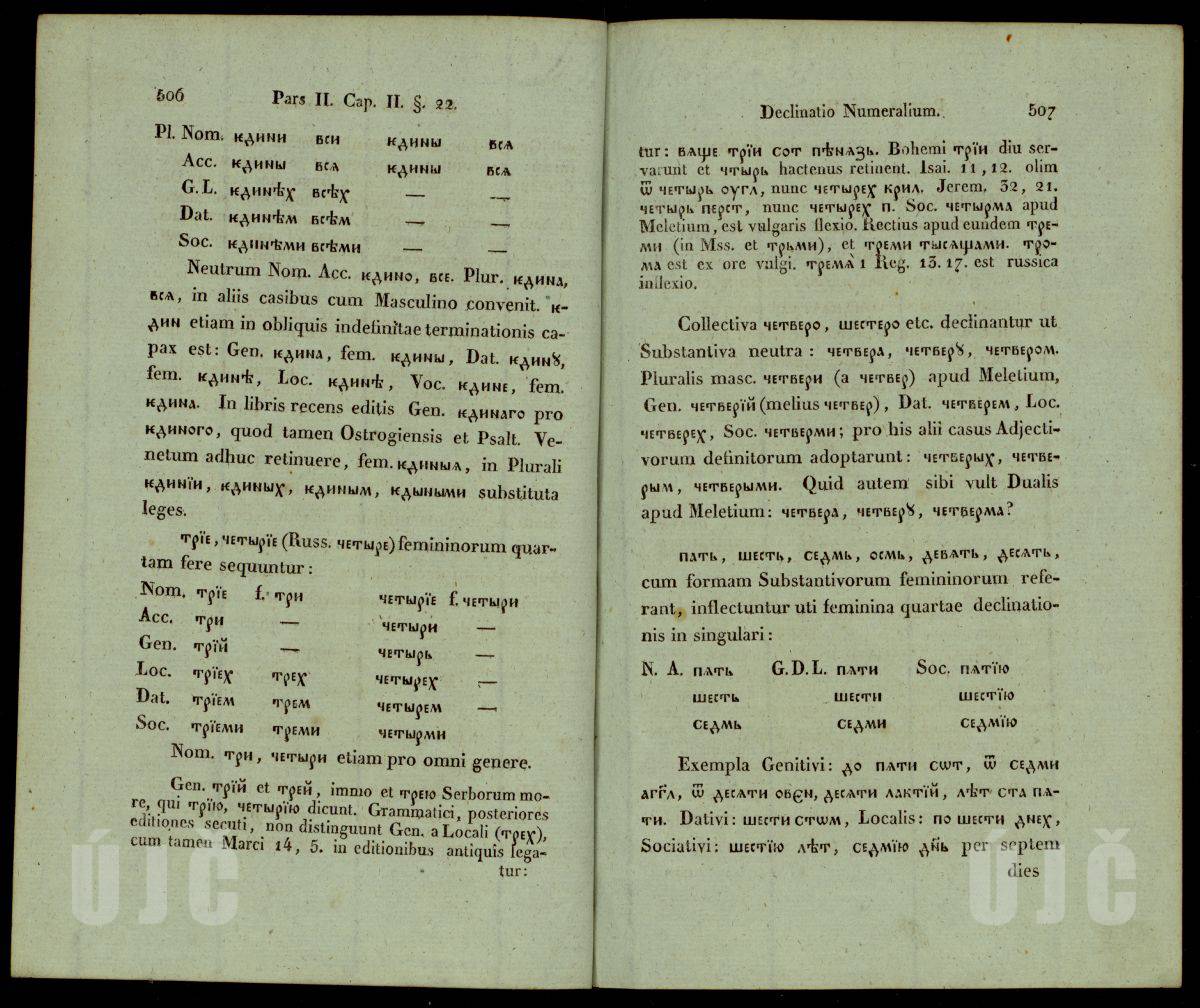 506 Pars II. Cap. II. §. 22.
Pl. Nom. ѥдини вси ѥдины всѧ
Acc. ѥдины всѧ ѥдины всѧ
G. L. ѥдинѣх всѣх — —
Dat. ѥдинѣм всѣм — —
Soc. ѥдинѣми всѣми — —
Neutrum Nom. Acc. ѥдино, все. Plur. ѥдина,
всѧ, in aliis casibus cum Masculino convenit. ѥ-
дин etiam in obliquis indefinitae terminationis ca-
pax est: Gen. ѥдина, fem. ѥдины, Dat. ѥдинꙋ,
fem. ѥдинѣ, Loc. ѥдинѣ, Voc. ѥдине, fem.
ѥдина. In libris recens editis Gen. ѥдинаго pro
ѥдиного, quod tamen Ostrogiensis et Psalt. Ve-
netum adhuc retinuere, fem. ѥдиныѧ, in Plurali
ѥдинїи, ѥдиных, ѥдиным, ѥдыными substituta
leges.
трїе, четырїе (Russ. четыре) femininorum quar-
tam fere sequuntur:
Nom. трїе f. три четырїе f. четыри
Acc. три — четыри —
Gen. трїй — четырь —
Loc. трїех трех четырех —
Dat. трїем трем четырем —
Soc. трїеми треми четырми
Nom. три, четыри etiam pro omni genere.
Gen. трїй et трей, immo et трею Serborum mo-
re, qui трїю, четырїю dicunt. Grammatici, posteriores
editiones secuti, non distinguunt Gen. a Locali (трех),
cum tamen Marci 14, 5. in editionibus antiquis lega-
tur:
ÚJČ
Declinatio Numeralium. 507
tur: вѧще трїи сот пѣнѧзь. Bohemi трїи diu ser-
varunt et чтырь hactenus retinent. Isai. 11, 12. olim
ѿ четырь оугл, nunc четырех крил. Jerem. 52, 21.
четырь перст, nunc четырех п. Soc. четырма apud
Meletium, est vulgaris flexio. Rectius apud eundem тре-
ми (in Mss. et трьми), et треми тысѧщами. тро-
ма est ex ore vulgi. трема̀ 1 Reg. 13. 17. est russica
inflexio.
Collectiva четверо, шестеро etc. declinantur ut
Substantiva neutra: четвера, четверꙋ, четвером.
Pluralis masc. четвери (a четвер) apud Meletium,
Gen. четверїй (melius четвер), Dat. четверем, Loc.
четверех, Soc. четверми; pro his alii casus Adjecti-
vorum definitorum adoptarunt: четверых, четве-
рым, четверыми. Quid autem sibi vult Dualis
apud Meletium: четвера, четверꙋ, четверма?
пѧть, шесть, седмь, осмь, девѧть, десѧть,
cum formam Substantivorum femininorum refe-
rant, inflectuntur uti feminina quartae declinatio-
nis in singulari:
N. A. пѧть G. D. L. пѧти Soc. пѧтїю
шесть шести шестїю
седмь седми седмїю
Exempla Genitivi: до пѧти сѡт, ѿ седми
агг҃л, ѿ десѧти овєн, десѧти лактїй, лѣт ста пѧ-
ти. Dativi: шести стѡм, Localis: по шести днех,
Sociativi: шестїю лѣт, седмїю дн҃ь per septem
dies
ÚJČ